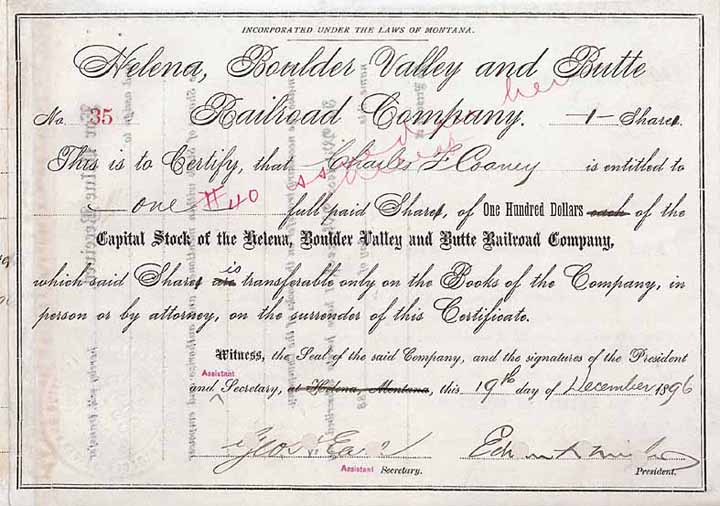 INCORPORATED UNDER THE LAWS OF MONTANA.
Helena, Boulder Valley and Butte
No. 35 Railroad Company. 1 Share.
This is to Certify, that Charles F Cooney is entitled to
one #40 full paid Share, of One Hundred Dollars each of the
Capital Stock of the Helena, Boulder Valley and Butte Railroad Company,
which said Share are is transferable only on the Books of the Company, in
person or by attorney, on the surrender of this Certificate.
Witness, the Seal of the said Company, and the signatures of the President
Assistant
and Secretary, at Helena, Montana, this 19th day of December 1896
Assistant Secretary. President.